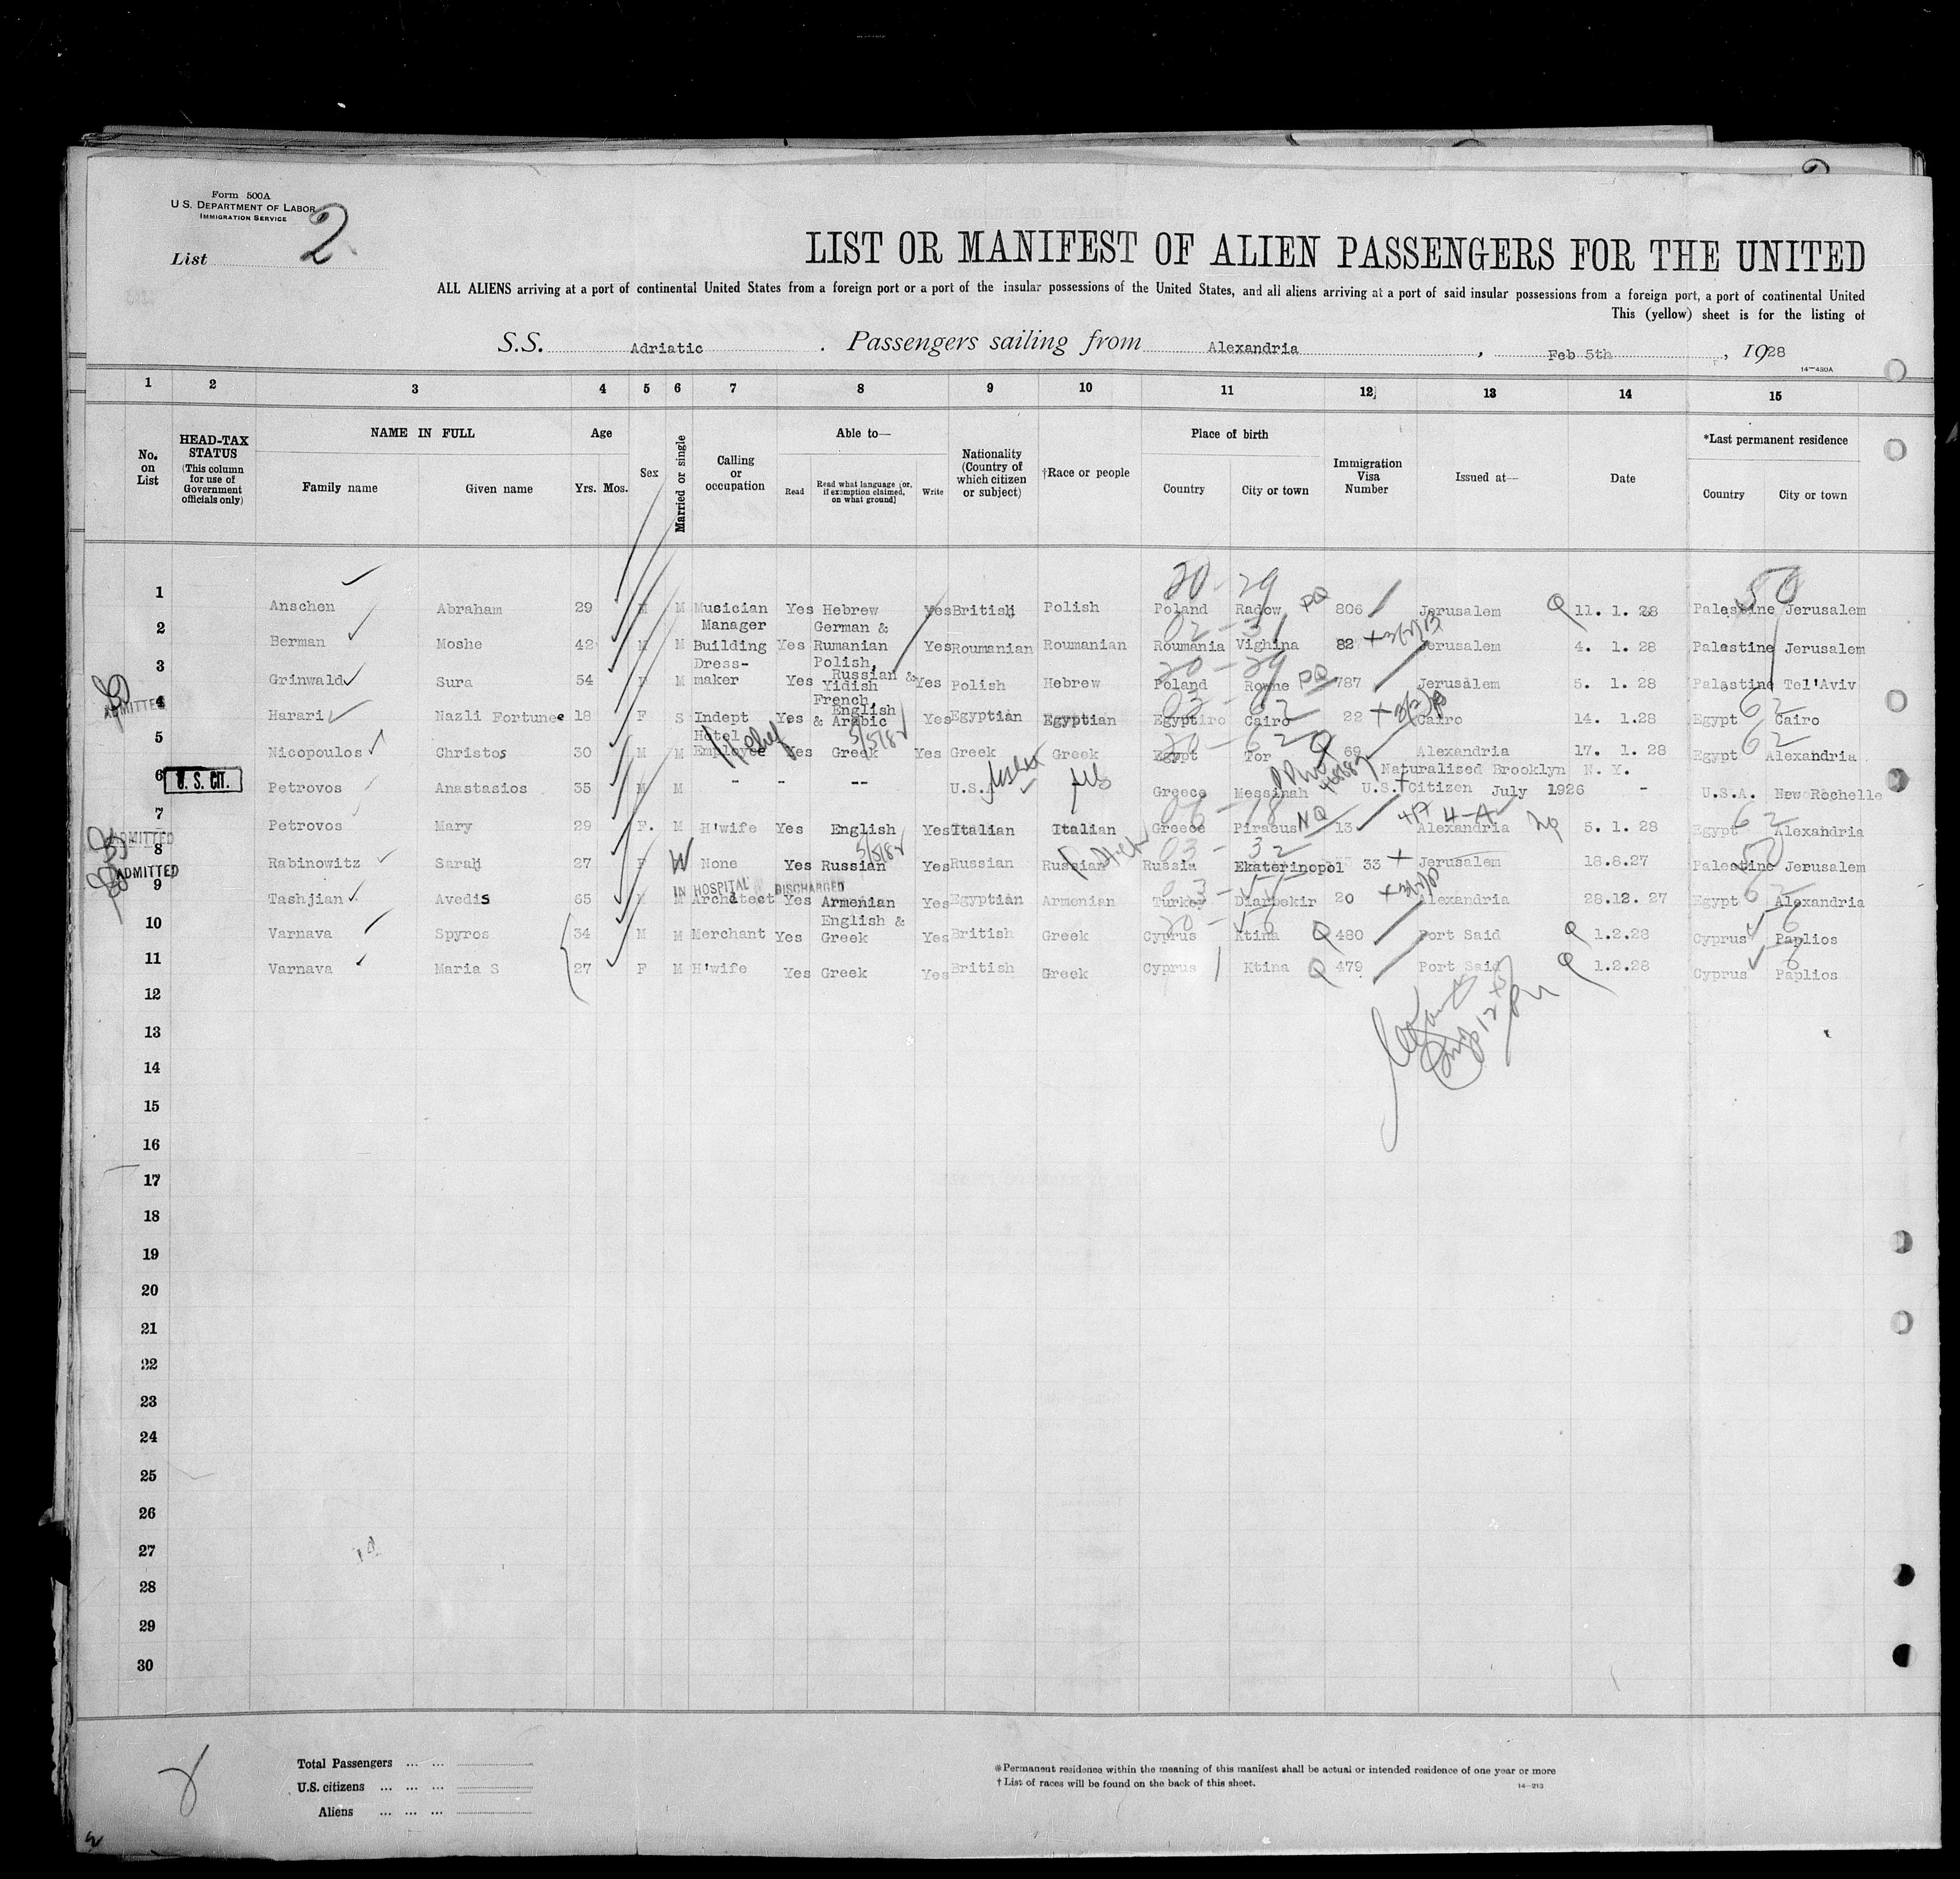 Form 500A
U. S. DEPARTMENT OF LABOR
IMMIGRATION SERVICE
List 2
LIST OR MANIFEST OF ALIEN PASSENGERS FOR THE UNITED
ALL ALIENS arriving at a port of continental United States from a foreign port or a port of the insular possessions of the United States, and all aliens arriving at a port of said insular possessions from a foreign port, a port of continental United
This (yellow) sheet is for the listing of
S.S. Adriatic . Passengers sailing from Alexandria , Feb 5th , 1928
14—430A
1 2 3 4 5 6 7 8 9 10 11 12 13 14 15
No. on List
HEAD-TAX STATUS (This column for use of Government officials only)
NAME IN FULL
Family name Given name
Age
Yrs. Mos.
Sex
Married or single
Calling or occupation
Able to—
Read
Read what language [or, if exemption claimed, on what ground]
Write
Nationality (Country of which citizen or subject)
†Race or people
Place of birth
Country City or town
Immigration Visa Number
Issued at—
Date
*Last permanent residence
Country City or town
20-29 50
1 Anschen Abraham 29 M M Musician Yes Hebrew Yes British Polish Poland Radow PQ 806 Jerusalem Q 11. 1. 28 Palestine Jerusalem
Manager German & 02-31
2 Berman Moshe 42 M M Building Yes Rumanian Yes Roumanian Roumanian Roumania Vighina 82 Jerusalem 4. 1. 28 Palestine Jerusalem
Dress- Polish, 20-29
Russian &
3 Grinwald Sura 54 F M maker Yes Yidish Yes Polish Hebrew Poland Rowne PQ 787 Jerusalem 5. 1. 28 Palastine Tel'Aviv
French, 03-62 62
English
ADMITTED
4 Harari Nazli Fortunee 18 F S Indept Yes & Arabic Yes Egyptian Egyptian Egyptiro Cairo 22 Cairo 14. 1.28 Egypt Cairo
Hotel 20-62 62
5 Nicopoulos Christos 30 M M Employee Yes Greek Yes Greek Greek Egypt Tor Q 69 Alexandria 17. 1. 28 Egypt Alexandria
Naturalised Brooklyn N. Y.
6 U. S. CIT. Petrovos Anastasios 35 M M - - -- U.S. Greece Messinah U.S. Citizen July 1926 - U.S.A. New Rochelle
62
ADMITTED
7 Petrovos Mary 29 F. M H'wife Yes English Yes Italian Italian Greece Piraeus NQ 13 4-A Alexandria 5. 1. 28 Egypt Alexandria
03-32 50
ADMITTED
8 Rabinowitz Sarah 27 F W None Yes Russian Yes Russian Russian Russia Ekaterinopol 33 Jerusalem 18.8.27 Palestine Jerusalem
IN HOSPITAL DISCHARGED 62
9 Tashjian Avedis 65 M M Architect Yes Armenian Yes Egyptian Armenian Turkey Diarbekir 20 Alexandria 28.12. 27 Egypt Alexandria
English &
10 Varnava Spyros 34 M M Merchant Yes Greek Yes British Greek Cyprus Ktina Q 480 Port Said Q 1.2.28 Cyprus Paplios
11 Varnava Maria S 27 F M H'wife Yes Greek Yes British Greek Cyprus Ktina Q 479 Port Said Q 1.2.28 Cyprus Paplios
12
13
14
15
16
17
18
19
20
21
22
23
24
25
26
27
28
29
30
Total Passengers ... ...
U.S. citizens ... ... ...
Aliens ... ... ...
*Permanent residence within the meaning of this manifest shall be actual or intended residence of one year or more
† List of races will be found on the back of this sheet. 14—213